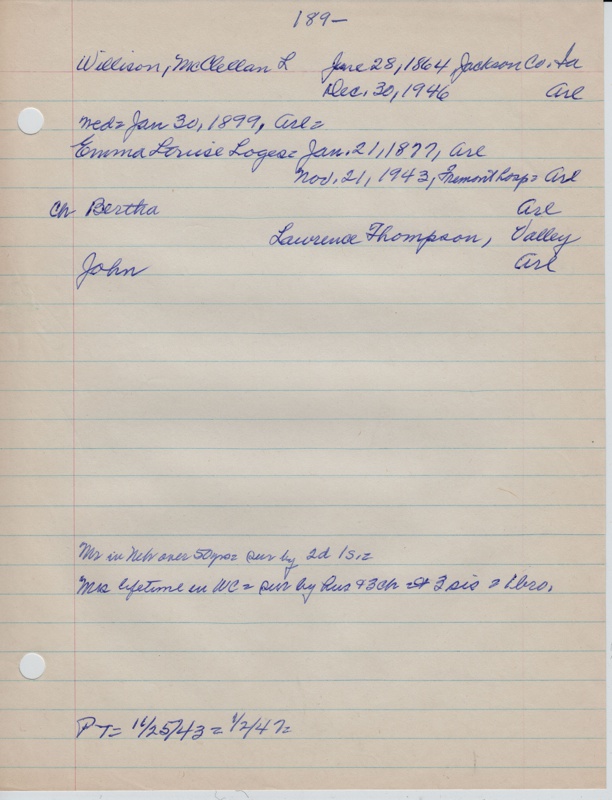 189-
Willison, McClellan L June 28, 1864 Jackson Co. Ia
Dec. 30, 1946 Arl
med= Jan 30, 1899, Arl=
Emma Louise Loges= Jan. 21, 1877, Arl
Nov. 21, 1943, Fremont Hosp= Arl
Ch Bertha Arl
Lawrence Thompson, Valley
John Arl
Mr in Nebr over 50 yrs= sur by 2d 1s.=
Mrs lifetime in WC= sur by hus + 3 ch = 3 sis = 1 bro.
PT= 11/25/43 = 1/2/47=